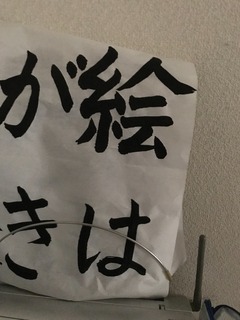 絵は
がき